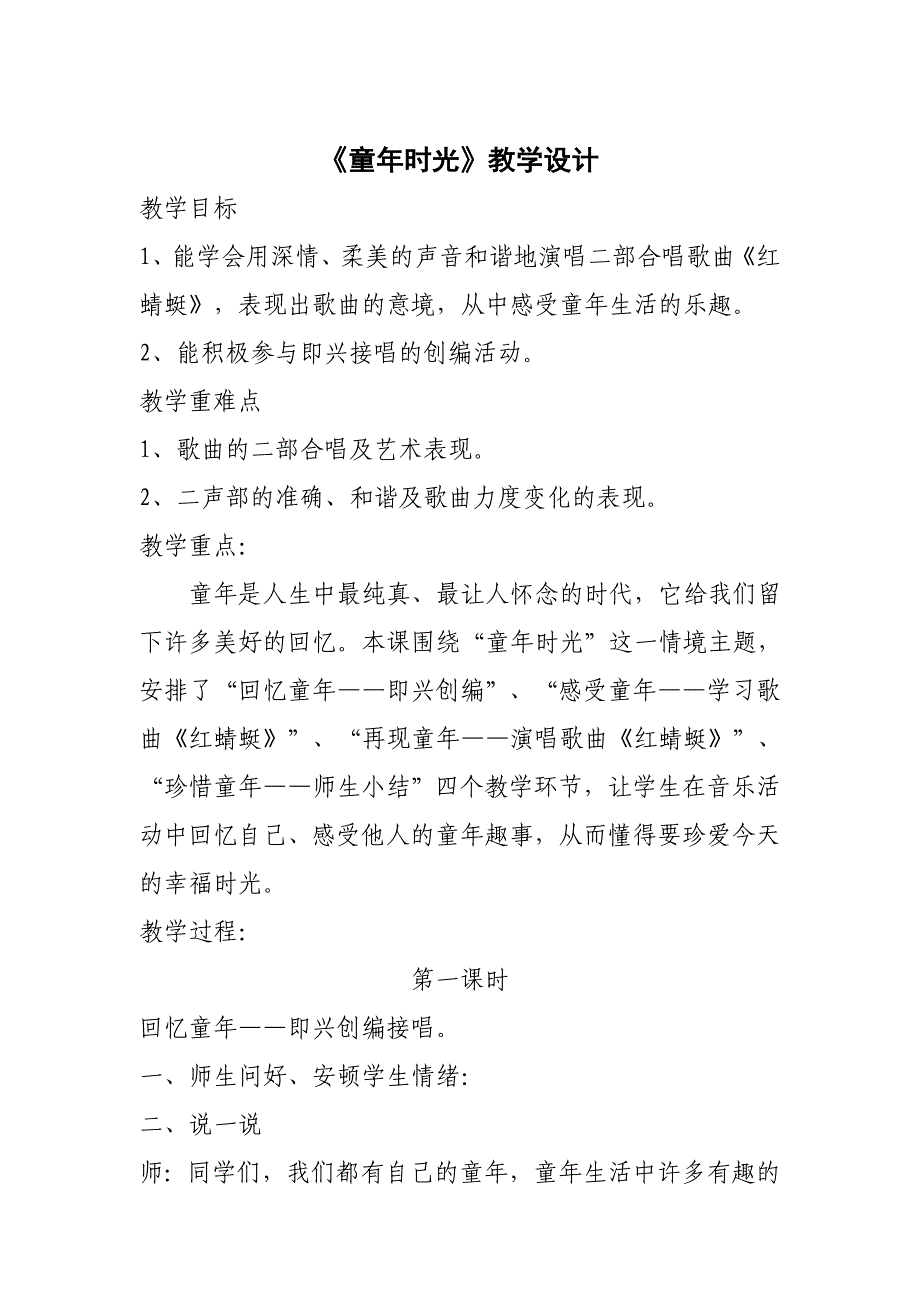 《童年时光》教学设计
教学目标
1、能学会用深情、柔美的声音和谐地演唱二部合唱歌曲《红
蜻蜓》，表现出歌曲的意境，从中感受童年生活的乐趣。
2、能积极参与即兴接唱的创编活动。
教学重难点
1、歌曲的二部合唱及艺术表现。
2、二声部的准确、和谐及歌曲力度变化的表现。
教学重点：
童年是人生中最纯真、最让人怀念的时代，它给我们留
下许多美好的回忆。本课围绕“童年时光”这一情境主题，
安排了“回忆童年——即兴创编”、“感受童年——学习歌
曲《红蜻蜓》”、“再现童年——演唱歌曲《红蜻蜓》”、
“珍惜童年——师生小结”四个教学环节，让学生在音乐活
动中回忆自己、感受他人的童年趣事，从而懂得要珍爱今天
的幸福时光。
教学过程：
第一课时
回忆童年——即兴创编接唱。
一、师生问好、安顿学生情绪：
二、说一说
师：同学们，我们都有自己的童年，童年生活中许多有趣的